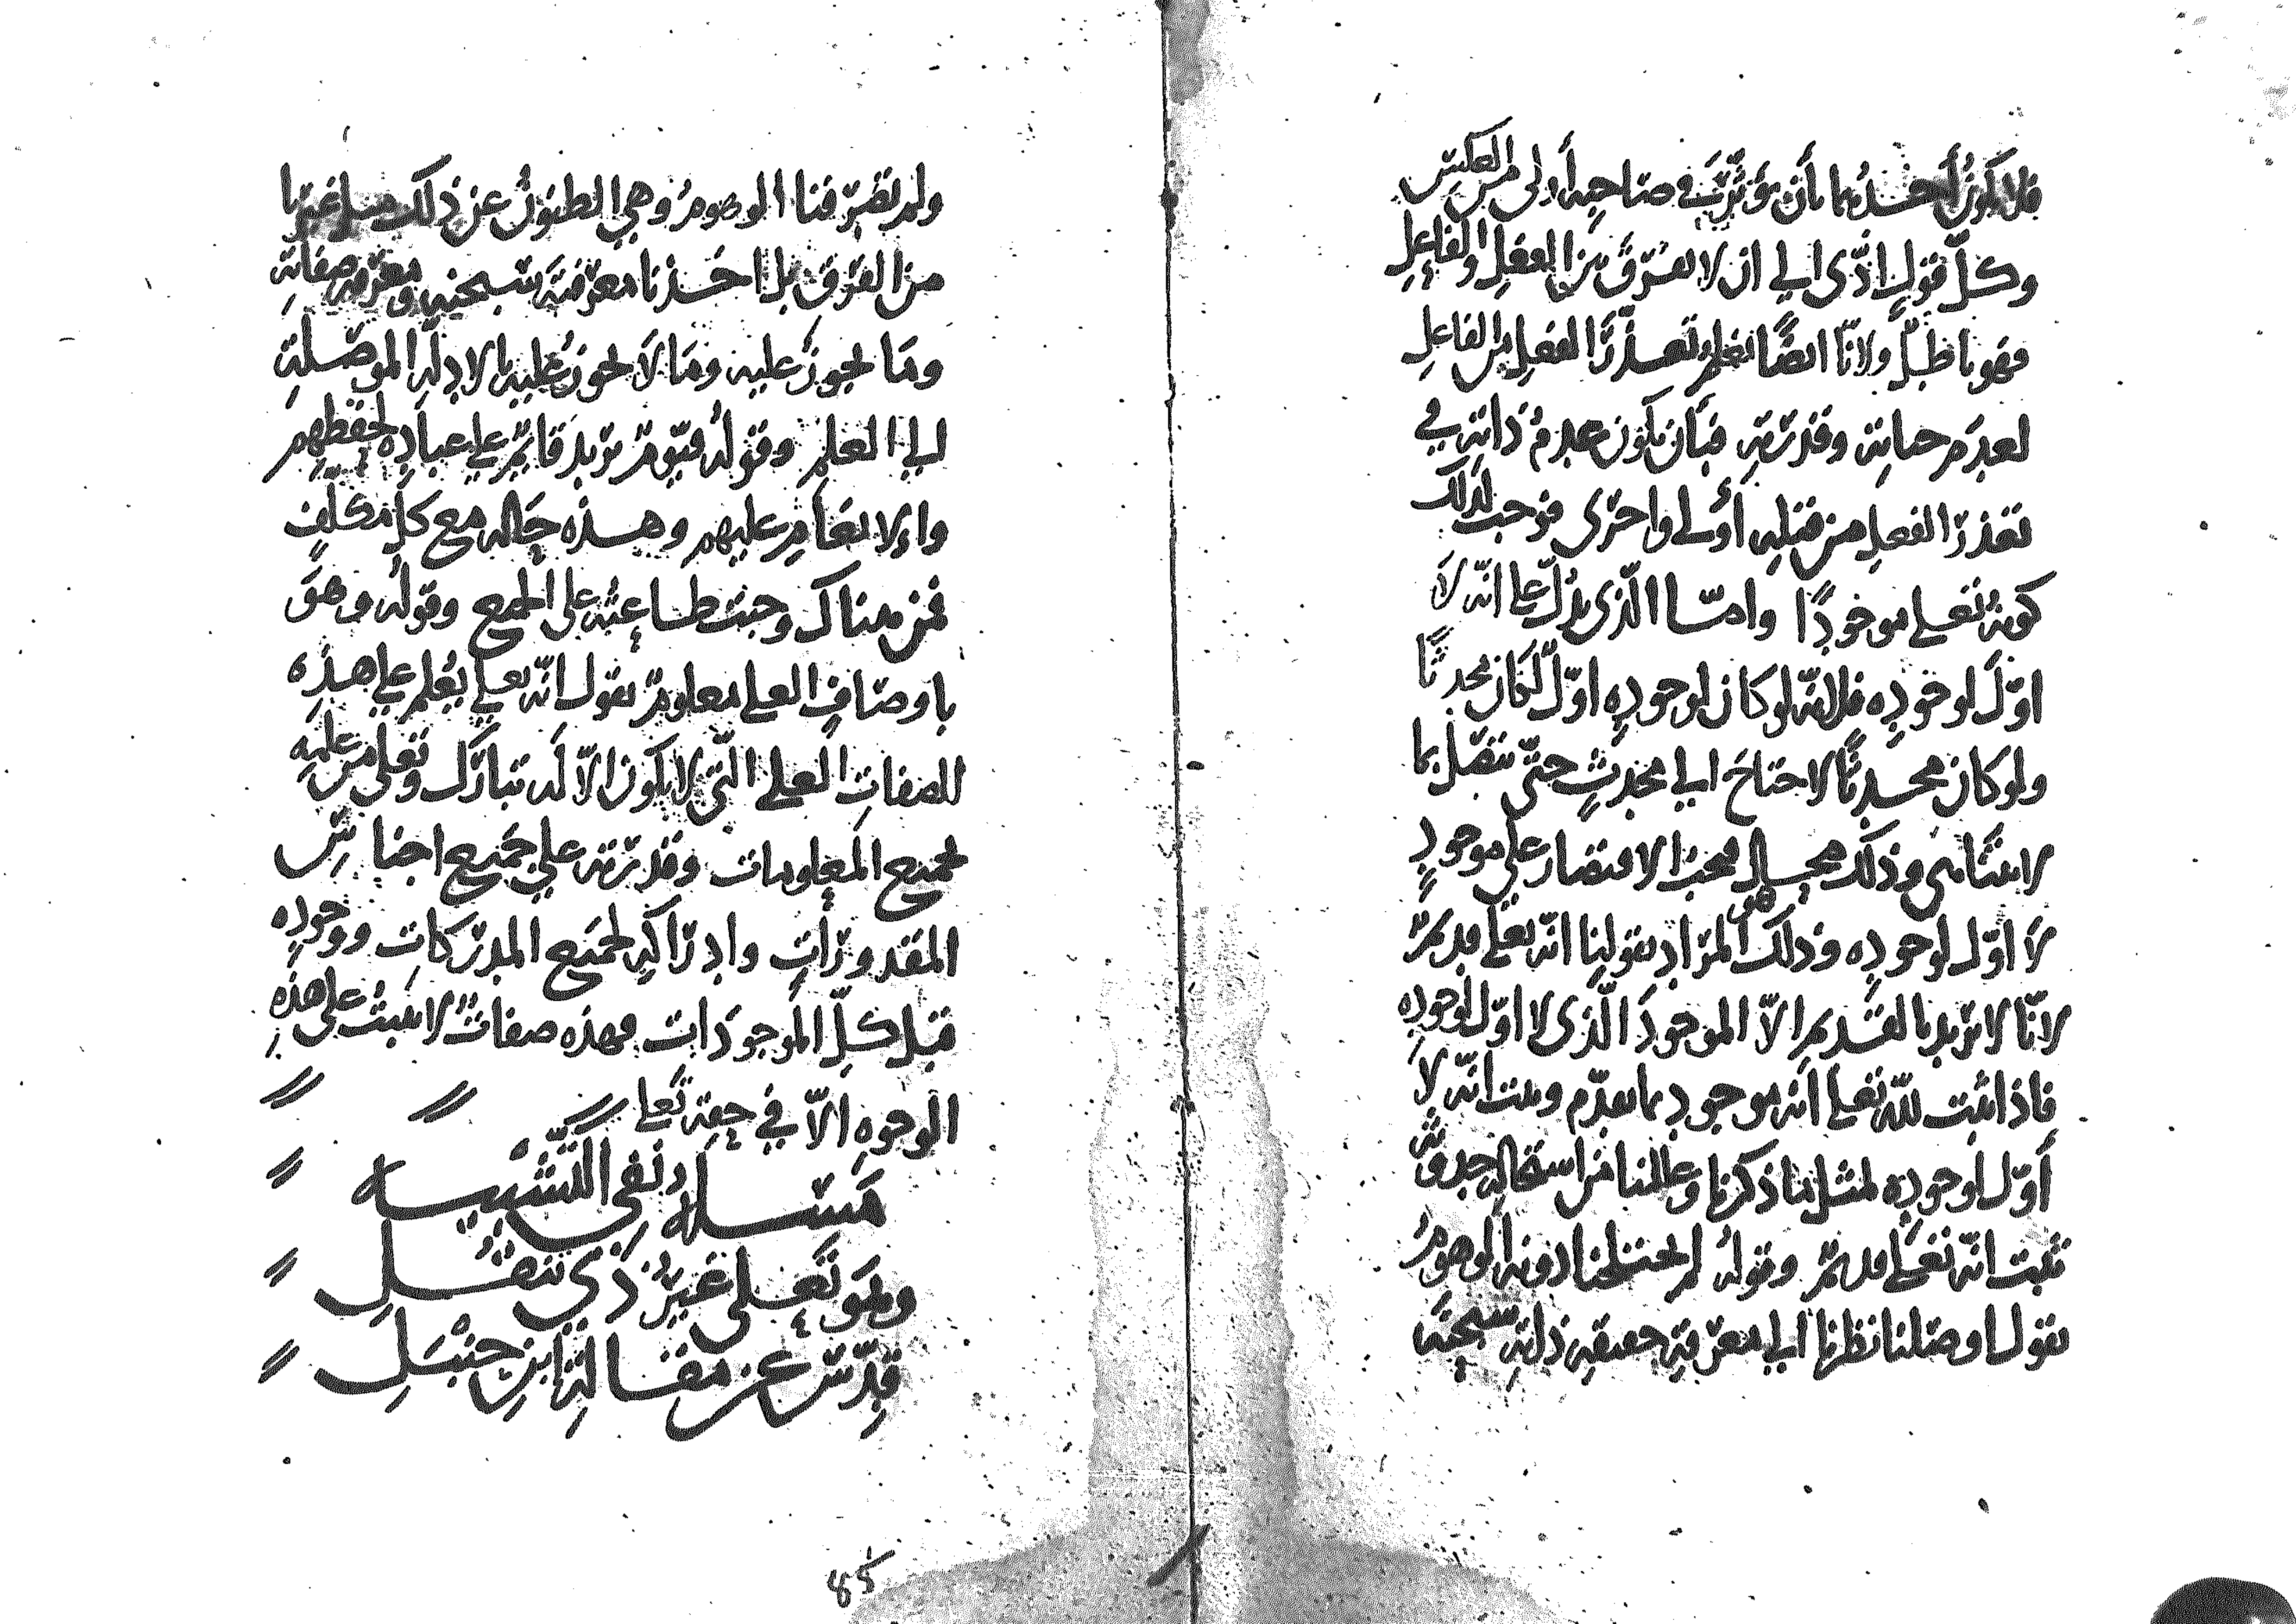 فلا يكون أحدهما بأن يؤثر في صاحبه أولى من العكس
وكل قول ادى الى ان لا يفرق بين الفعل والفاعل
فهو باطل ولانا ايضا نعلم تعذر الفعل من الفاعل
لعدم حياته وقدرته فبأن يكون عدم ذاته في
تعذر الفعل من قبله أولى واحرى فوجب لذلك
كونه تعلى موجودا وامّا الّذي يدل على انّه لا
اوّل لوجوده فلانّه لو كان لوجوده اوّل لكان محدثا
ولو كان محدثا لاحتاج الى محدث حتّى يتصل بما
لا يتناهى وذلك محال فيجب الاقتصار على موجود
لا اوّل لوجوده وذلك هو المراد بقولنا انّه تعلى قديم
لانّا لا نريد بالقديم الاّ الموجود الّذي لا اوّل لوجوده
فاذا ثبت لله تعلى انه موجود بما تقدّم وثبت انّه لا
أوّل لوجوده لمثل ما ذكرنا وعلمنا من استحالة حدوثه
ثبت انّه تعلى قديم وقوله لم يختلجنا دونه الوهوم
يقول اوصلنا نظرنا الى معرفة حقيقة ذاته سبحنه
ولم تصرفنا الوهوم وهي الظنون عن ذلك
من الفرق بل اخذنا معرفته سبحنه ومعرفة صفاته
وما يجوز عليه وما لا يجوز عليه بالادلّة الموصلة
الى العلم وقوله قيّوم يريد قايم على عباده لحفظهم
والانعام عليهم وهذه حاله مع كل مكلّف
فمن هناك وجبت طاعته على الجميع وقوله وهو
باوصاف العلى معلوم يقول انّه تعلى يعلم على هذه
الصفات العلى التّي لا يكون الاّ له تبارك وتعلى من علمه
لجميع المعلومات وقدرته على جميع اجناس
المقدورات وادراكه لجميع المدركات ووجوده
قبل كلّ الموجودات فهذه صفات لا تثبت على هذه
الوجوه الاّ في حقه تعلى
مسئلة في نفي التّشبيه
وهو تعلى غير ذي تنقل
قدّس عن مقالة ابن حنبل
85